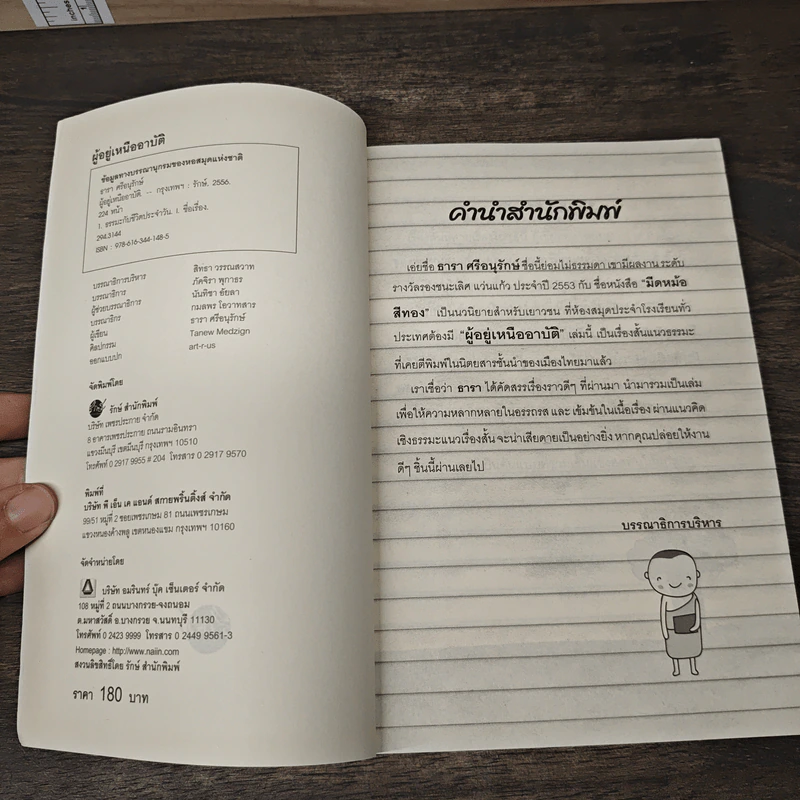 inches
1
ผู้อยู่เหนืออาบัติ
ข้อมูลทางบรรณานุกรมของหอสมุดแห่งชาติ
ธารา ศรีอนุรักษ์
ผู้อยู่เหนืออาบัติ. -- กรุงเทพฯ : รักษ์, 2556.
224 หน้า
1. ธรรมะกับชีวิตประจำวัน. I. ชื่อเรื่อง.
294.3144
ISBN : 978-616-344-148-5
บรรณาธิการบริหาร สิทธา วรรณสวาท
บรรณาธิการ ภัคจิรา พุกาธร
ผู้ช่วยบรรณาธิการ นันทิชา อัยลา
บรรณาธิกร กมลพร โอวาทสาร
ผู้เขียน ธารา ศรีอนุรักษ์
ศิลปกรรม Tanew Medzign
ออกแบบปก art-r-us
จัดพิมพ์โดย
รักษ์ สำนักพิมพ์
บริษัท เพชรประกาย จำกัด
8 อาคารเพชรประกาย ถนนรามอินทรา
แขวงมีนบุรี เขตมีนบุรี กรุงเทพฯ 10510
โทรศัพท์ 0 2917 9955 # 204 โทรสาร 0 2917 9570
พิมพ์ที่
บริษัท พี เอ็น เค แอนด์ สกายพริ้นติ้งส์ จำกัด
99/51 หมู่ที่ 2 ซอยเพชรเกษม 81 ถนนเพชรเกษม
แขวงหนองค้างพลู เขตหนองแขม กรุงเทพฯ 10160
จัดจำหน่ายโดย
บริษัท อมรินทร์ บุ๊ค เซ็นเตอร์ จำกัด
108 หมู่ที่ 2 ถนนบางกรวย-จงถนอม
ต.มหาสวัสดิ์ อ.บางกรวย จ.นนทบุรี 11130
โทรศัพท์ 0 2423 9999 โทรสาร 0 2449 9561-3
Homepage : http://www.naiin.com
สงวนลิขสิทธิ์โดย รักษ์ สำนักพิมพ์
ราคา 180 บาท
คำนำสำนักพิมพ์
เอ่ยชื่อ ธารา ศรีอนุรักษ์ ชื่อนี้ย่อมไม่ธรรมดา เขามีผลงาน ระดับ
รางวัลรองชนะเลิศ แว่นแก้ว ประจำปี 2553 กับ ชื่อหนังสือ "มีดหม้อ
สีทอง" เป็นนวนิยายสำหรับเยาวชน ที่ห้องสมุดประจำโรงเรียนทั่ว
ประเทศต้องมี "ผู้อยู่เหนืออาบัติ" เล่มนี้ เป็นเรื่องสั้นแนวธรรมะ
ที่เคยตีพิมพ์ในนิตยสารชั้นนำของเมืองไทยมาแล้ว
เราเชื่อว่า ธารา ได้คัดสรรเรื่องราวดีๆ ที่ผ่านมา นำมารวมเป็นเล่ม
เพื่อให้ความหลากหลายในอรรถรส และ เข้มข้นในเนื้อเรื่อง ผ่านแนวคิด
เชิงธรรมะแนวเรื่องสั้น จะน่าเสียดายเป็นอย่างยิ่ง หากคุณปล่อยให้งาน
ดีๆ ชิ้นนี้ผ่านเลยไป
บรรณาธิการบริหาร